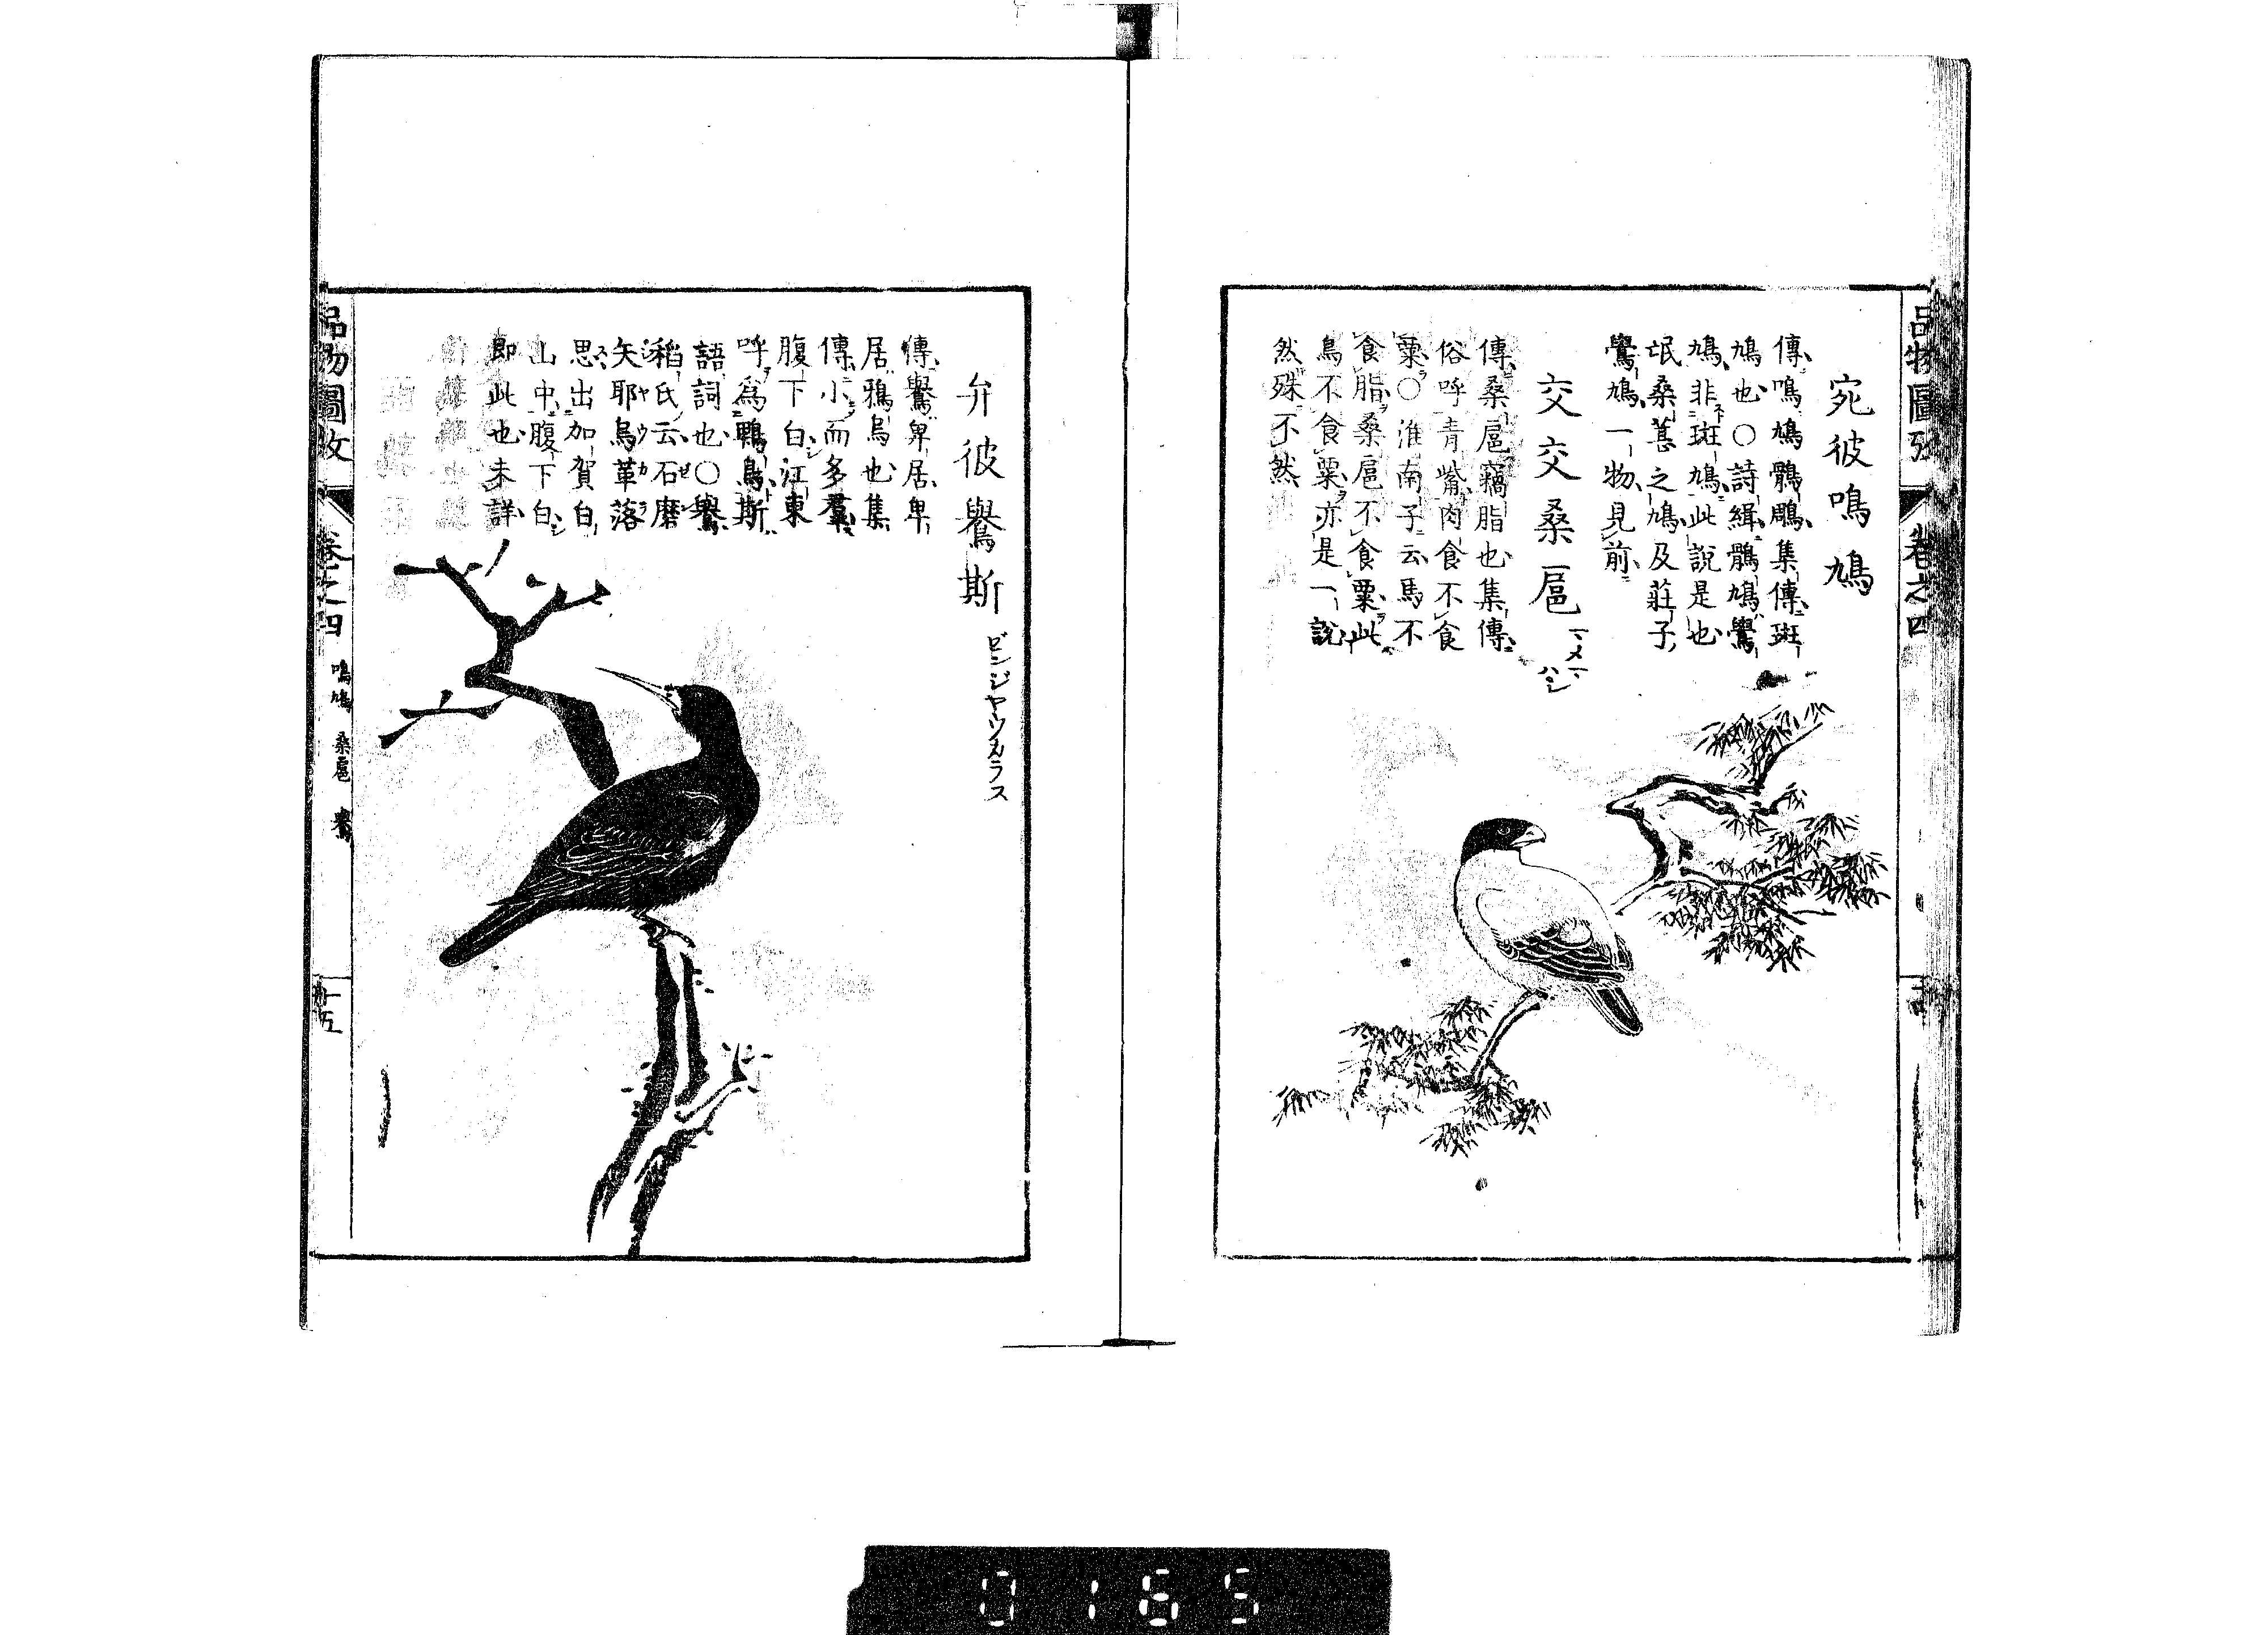 宛彼鳴鳩
傳鳴鳩鶻鵰集傳斑
鳩也〇詩緝鶻鳩鷽
鳩非斑鳩此說是也
氓桑葚之鳩及莊子
鷽鳩一物見前
交交桑扈
傳桑扈竊脂也集傳
俗呼青觜肉食不食
粟〇淮南子云馬不
食脂桑扈不食粟此
鳥不食粟亦是一說
然殊不然
品物圖攷
卷之四
弁彼鸒斯 ビンジヤウカラス
傳鸒卑居卑
居鴉烏也集
傳小而多羣
腹下白江東
呼為鵯烏斯
語詞也〇鸒
稻氏云石磨
矢耶烏革落
思出加賀白
山中腹下白
即此也未詳
品物圖攷
卷之四
鳴鳩 桑扈 鸒
十五
0165